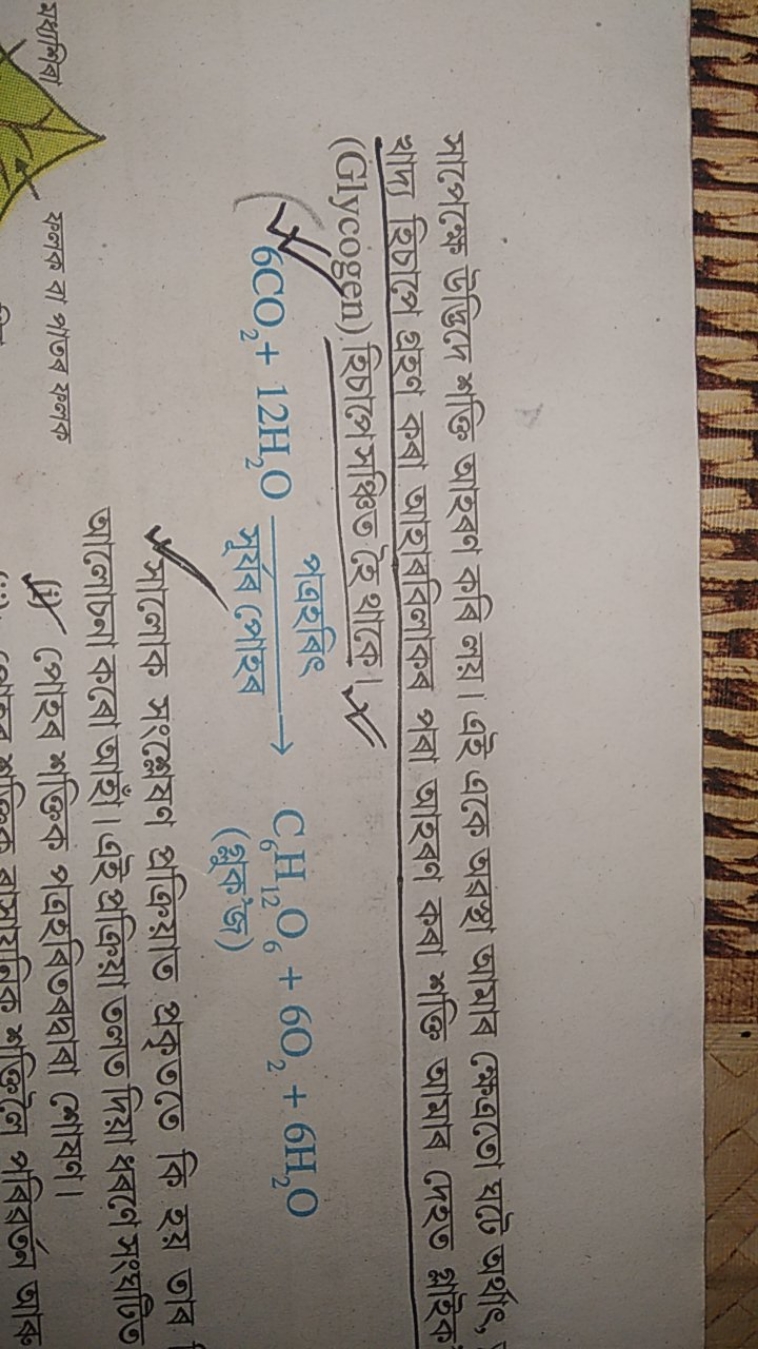 সাপেক্ষে উদ্ভিদে শক্তি আহৰণ কৰি লয়। এই একে অৱস্থা আমাৰ ক্ষেত্ৰতো ঘটে অৰ্থাৎ,
খাদ্য হিচাপে গ্ৰহণ কৰা আহাৰবিলাকৰ পৰা আহৰণ কৰা শক্তি আমাৰ দেহত গ্লাইক'
(Glycogen) হিচাপে সঞ্চিত হৈ থাকে।
পত্ৰহৰিৎ
6CO₂ + 12H₂O ⟶ C₆H₁₂O₆ + 6O₂ + 6H₂O
সূৰ্যৰ পোহৰ (গ্লুক'জ)
সালোক সংশ্লেষণ প্ৰক্ৰিয়াত প্ৰকৃততে কি হয় তাৰ
আলোচনা কৰো আহাঁ। এই প্ৰক্ৰিয়া তলত দিয়া ধৰণে সংঘটিত
(i) পোহৰ শক্তিক পত্ৰহৰিতৰদ্বাৰা শোষণ।
পোহৰ শক্তিক ৰাসায়নিক শক্তিলৈ পৰিৱৰ্তন আৰু
মধ্যশিৰা
ফলক বা পাতৰ ফলক